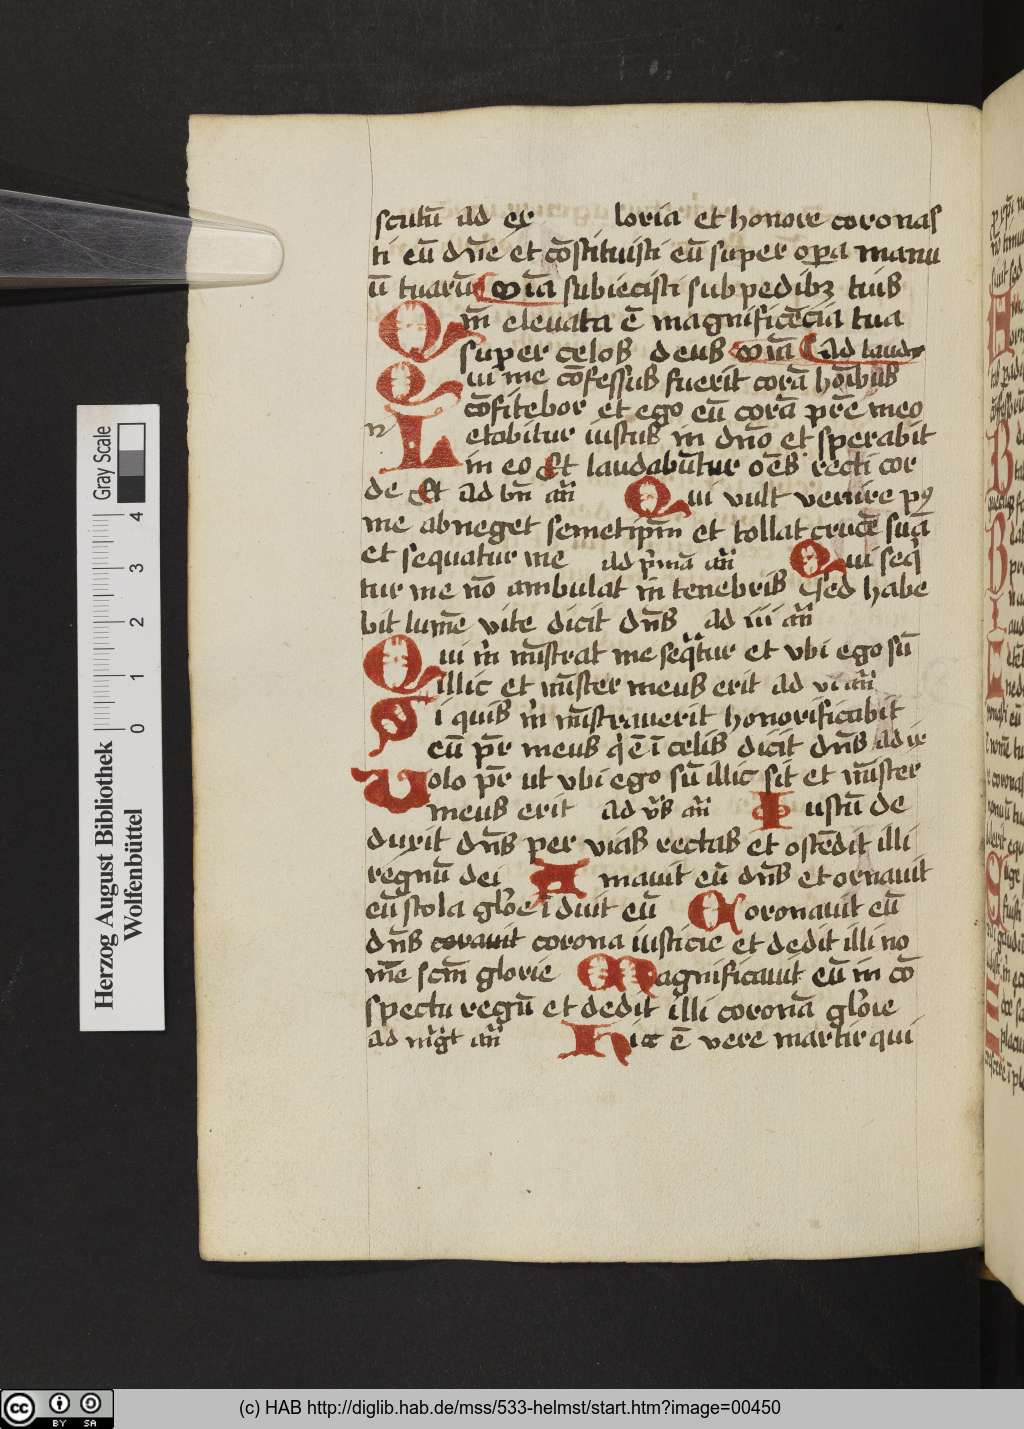 scutū ad ex loria et honore coronas
ti eū dn̄e et cōstituisti eū super oꝑa manu
ū tuarū om̄ia subiecisti sub pedibꝫ tuis
Qm̄ eleuata ē magnificēcia tua
super celos deus om̄ia Ad laudes
Qui me cōfessus fuerit corā hoībus
cōfitebor et ego eū corā pr̄e meo
Letabitur iustus in dn̄o et sperabit
in eo Et laudabūtur oēs recti cor
de Et ad bn̄ an̄ Qui vult venire pꝰ
me abneget semetipm̄ et tollat crucē suā
et sequatur me ad p̄mā an̄ Qui seq̄
tur me nō ambulat in tenebris sed habe
bit lumē vite dicit dn̄s ad iii an̄
Qui m̄ mīstrat me seq̄tur et vbi ego sū
illic et mīster meus erit ad vi an̄
Si quis m̄ mīstrauerit honorificabit
eū pr̄ meus q̄ ē ī celis dicit dn̄s ad ix
Uolo pr̄ ut vbi ego sū illic sit et mīster
meus erit ad v̄s an̄ Iustū de
duxit dn̄s per vias rectas et ostēdit illi
regnū dei Amauit eū dn̄s et ornauit
eū stola glōe īduit eū Coronauit eū
dn̄s corauit corona iusticie et dedit illi no
mē scm̄ glorie Magnificauit eū in cō
spectu regū et dedit illi coronā glōie
ad mḡt an̄ Hic ē vere martir qui
Herzog August Bibliothek
Wolfenbüttel
Gray Scale
0 1 2 3 4
cc BY SA
(c) HAB http://diglib.hab.de/mss/533-helmst/start.htm?image=00450